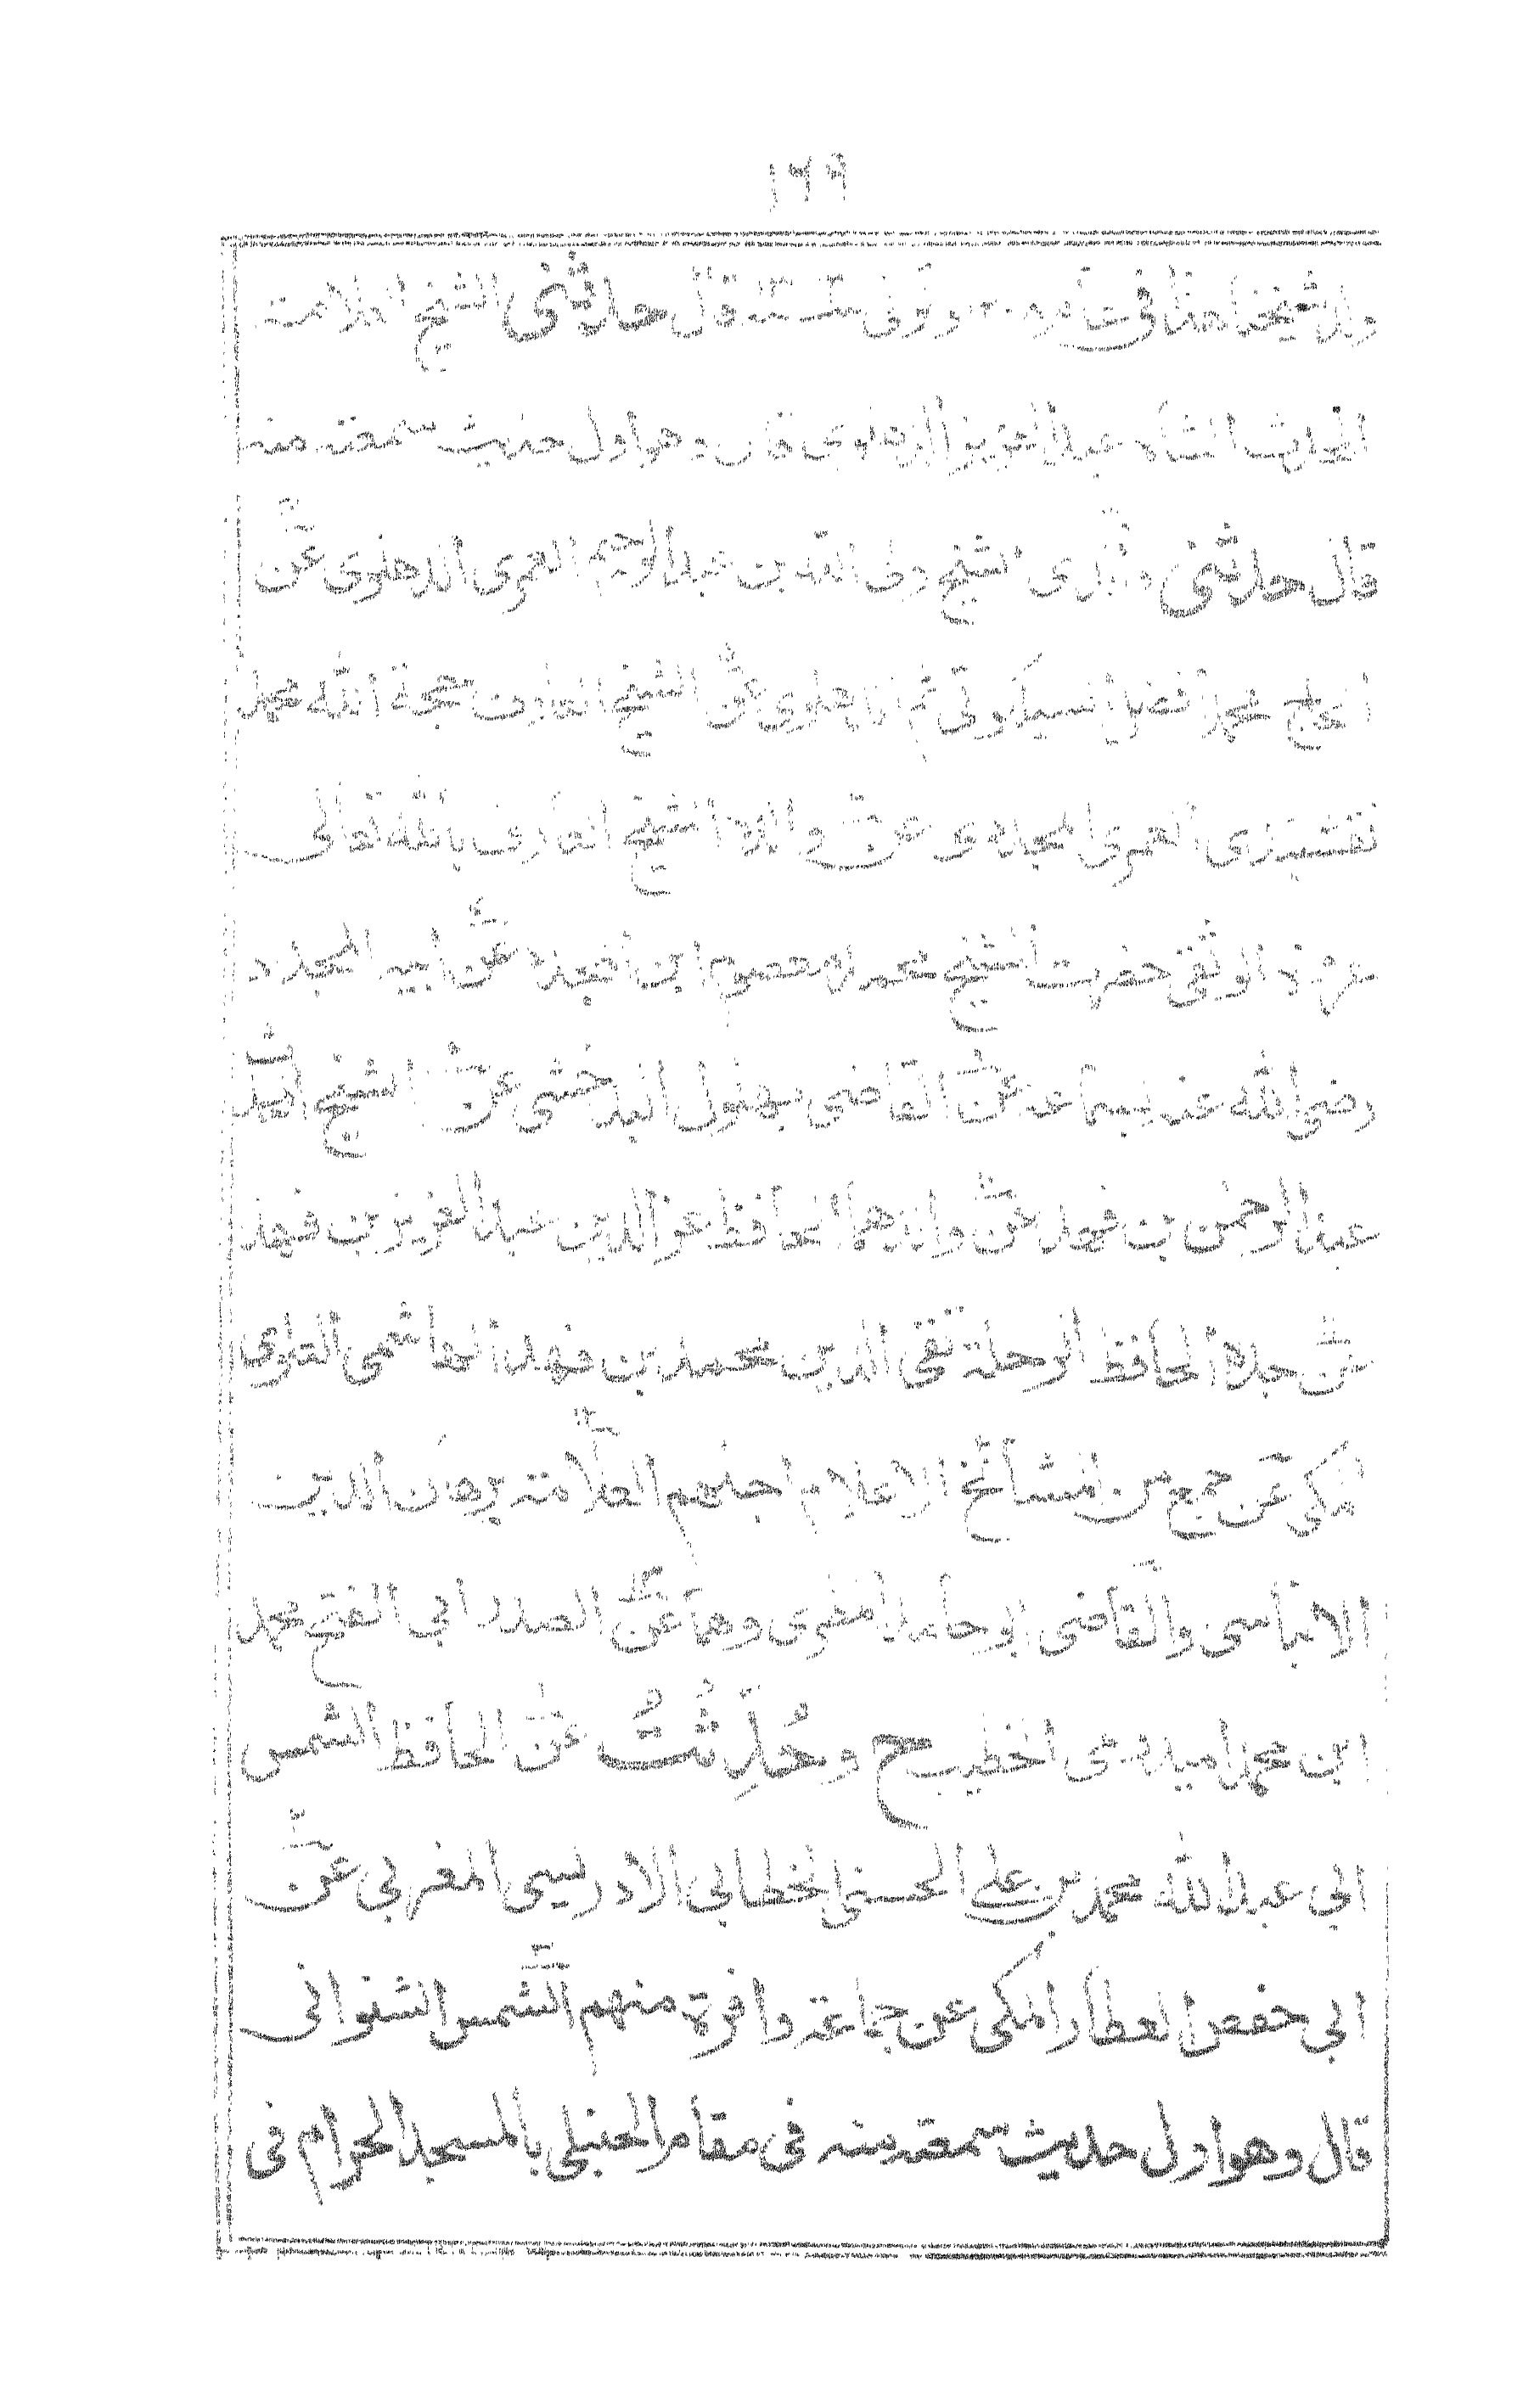 ١٦٩
ولد شيخنا هذا في ... وتوفى سنة ... قال حدثني الشيخ العلامة
المحدث الشاه عبد العزيز الدهلوي قال وهو اول حديث سمعته منه
قال حدثني والدي الشيخ ولى الله بن عبد الرحيم العمرى الدهلوى عن
الحاج محمد افضل السيلكوتى ثم الدهلوى عن الشيخ العارف حجة الله محمد
نقشبندى العمرى المجددى عن والده الشيخ العارف بالله تعالى
عروة الوثقى حضرت الشيخ محمد معصوم عن ابيه المجدد
رضى الله عنه سماعه عن القاضى بهلول البدخشى عن الشيخ
عبد الرحمن بن فهد عن والدهما الحافظ عز الدين عبد العزيز بن فهد
عن جده الحافظ الرحلة تقى الدين محمد بن فهد الهاشمى العلوي
المكى عن جمع من المشائخ الاعلام اجلهم العلامة برهان الدين
الانباسى والقاضى ابو حامد المطرى وهما عن الصدر ابي الفتح محمد
ابن محمد الميدومى الخطيب ح وحُدِّثتُ عن الحافظ الشمس
ابي عبد الله محمد بن علي الحسنى الخطابي الادريسى المغربي عن
ابي حفص العطار المكى عن جماعة وافرة منهم الشمس الشنوانى
قال وهو اول حديث سمعته منه فى مقام الحنبلى بالمسجد الحرام فى